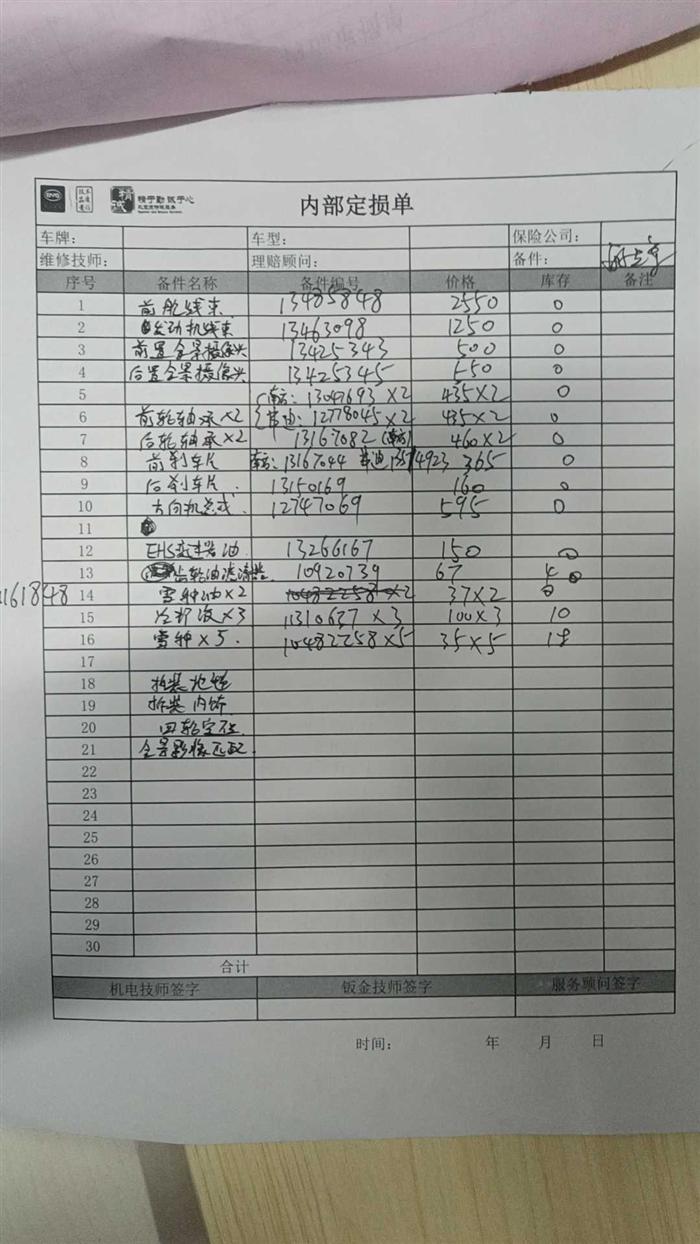 BYD 精诚 精于勤 诚于心
内部定损单
车牌： 车型： 保险公司：
维修技师： 理赔顾问： 备件：
序号 备件名称 备件编号 价格 库存 备注
1 前舱线束 13485848 2550 0
2 发动机线束 13463098 1250 0
3 前置全景摄像头 13425343 500 0
4 后置全景摄像头 13425345 550 0
5 南方：13047693 ×2 435×2 0
6 前轮轴承×2 12778045×2 435×2 0
7 后轮轴承×2 13167082 (南方) 460×2 0
8 前刹车片 南方：13167044 4923 365 0
9 后刹车片 13150169 160 0
10 方向机总成 12747069 595 0
11
12 EHS变速器油 13266167 150 0
13 齿轮油滤清器 10920739 67
161848 14 雪种油×2 10482258×2 37×2 0
15 冷却液×3 11310637×3 100×3 10
16 雪种×5 10482258×5 35×5 18
17
18 拆装电池
19 拆装内饰
20 四轮定位
21 全景影像匹配
22
23
24
25
26
27
28
29
30
合计
机电技师签字 钣金技师签字 服务顾问签字
时间： 年 月 日